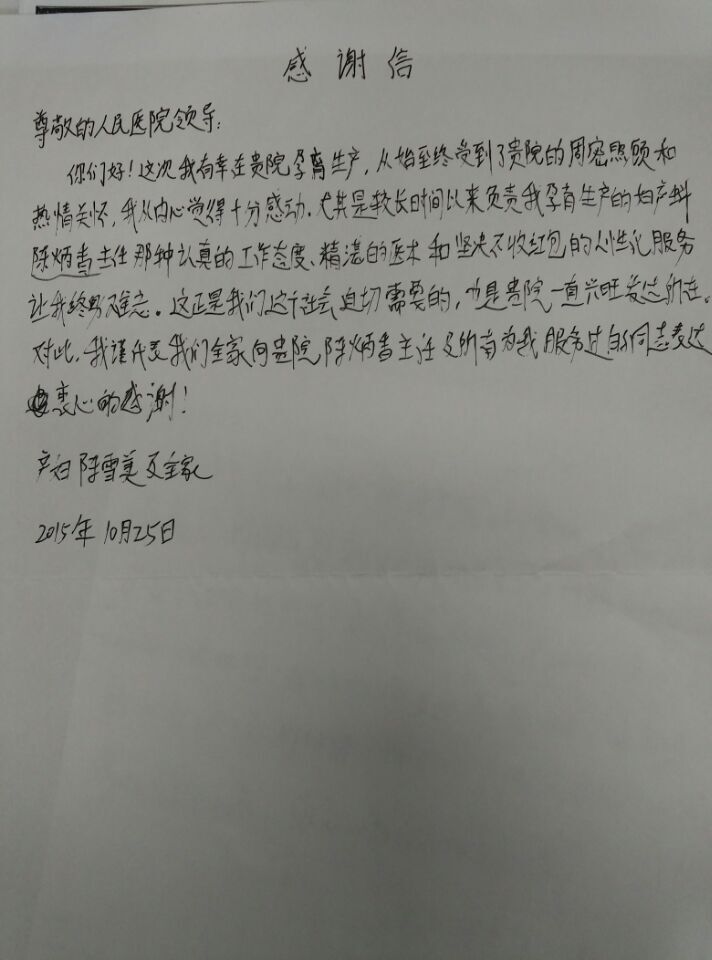 感谢信
尊敬的人民医院领导:
你们好!这次我有幸在贵院孕育生产,从始至终受到了贵院的周密照顾和
热情关怀,我从内心觉得十分感动。尤其是较长时间以来负责我孕育生产的妇产科
陈炳香主任那种认真的工作态度、精湛的医术和坚决不收红包的人性化服务
让我终身难忘。这正是我们这个社会迫切需要的,也是贵院一直兴旺发达所在。
对此,我谨代表我们全家向贵院陈炳香主任及所有为我服务过的同志表达
衷心的感谢!
产妇陈雪美及全家
2015年10月25日